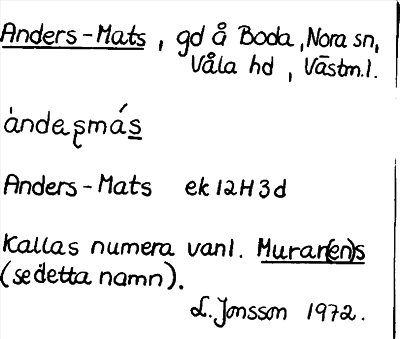 Anders-Mats, gd å Boda, Nora sn,
Våla hd, Västm.l.
àndaʂmás
Anders-Mats ek 12H3d
Kallas numera vanl. Murar(en)s
(se detta namn).
L. Jonsson 1972.